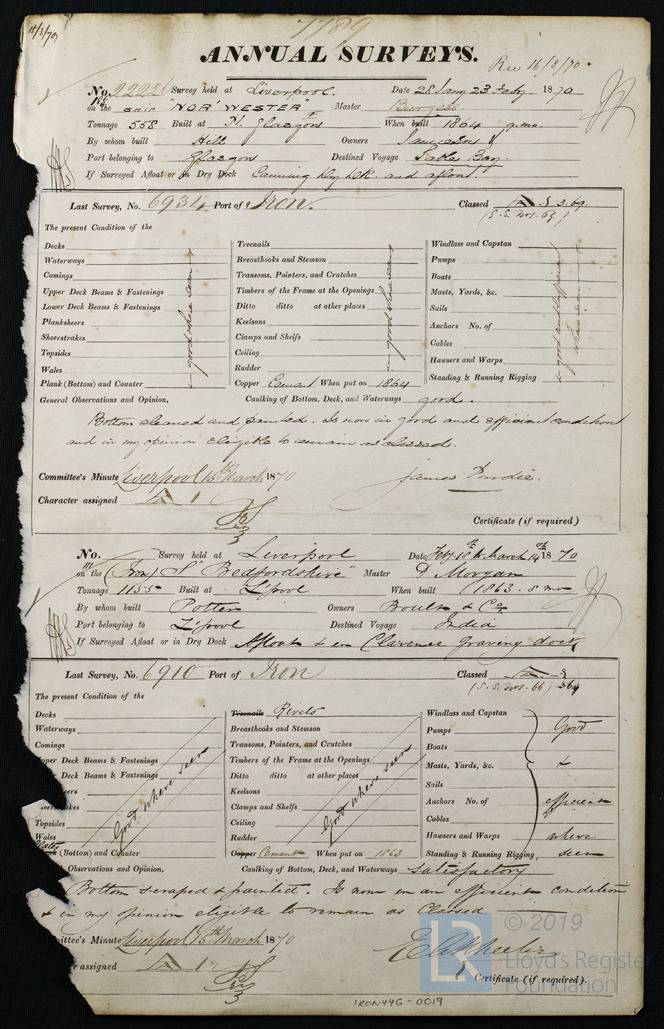 15/3/70
7789
ANNUAL SURVEYS.
Rec 16/3/70
No. 22226 Survey held at Liverpool. Date 28 Jany 23 Feby 1870
on the Ship "NOR'WESTER" Master Burgess
Tonnage 558 Built at Pt. Glasgow When built 1864 9 mo.
By whom built Hill Owners
Port belonging to Glasgow Destined Voyage Table Bay.
If Surveyed Afloat or in Dry Dock Canning Dry Dk. and afloat
Last Survey, No. 6934 Port of Iron. Classed 3.69.
(S.S. Nos. 67)
The present Condition of the
Decks
Waterways
Comings
Upper Deck Beams & Fastenings
Lower Deck Beams & Fastenings
Planksheers
Sheerstrakes
Topsides
Wales
Plank (Bottom) and Counter
good where seen
Treenails
Breasthooks and Stemson
Transoms, Pointers, and Crutches
Timbers of the Frame at the Openings
Ditto ditto at other places
Keelsons
Clamps and Shelfs
Ceiling
Rudder
Copper Cement When put on 1864
good where seen
Windlass and Capstan
Pumps
Boats
Masts, Yards, &c.
Sails
Anchors No. of
Cables
Hawsers and Warps
Standing & Running Rigging
good and efficient
where seen
General Observations and Opinion, Caulking of Bottom, Deck, and Waterways good.
Bottom cleaned and painted. Is now in good and efficient condition
and in my opinion eligible to remain as classed.
Committee's Minute Liverpool 15th March 1870 James Purdie.
Character assigned A 1
Certificate (if required)
No. Survey held at Liverpool Date Feby. 18th to March 14th 1870
on the (Iron) S "Bedfordshire" Master D Morgan
Tonnage 1155 Built at L'pool When built (1863. 8 mo
By whom built Potter Owners Boult & Co.
Port belonging to L'pool Destined Voyage India
If Surveyed Afloat or in Dry Dock Afloat & in Clarence graving dock
Last Survey, No. 6910 Port of Iron Classed
(S.S. Nos. 66) 3 69
The present Condition of the
Decks
Waterways
Comings
pper Deck Beams & Fastenings
Deck Beams & Fastenings
eers
kes
Topsides
Wales
(Bottom) and Counter
Good where seen
Treenails Rivets
Breasthooks and Stemson
Transoms, Pointers, and Crutches
Timbers of the Frame at the Openings
Ditto ditto at other places
Keelsons
Clamps and Shelfs
Ceiling
Rudder
Copper Cement When put on 1863
Good where seen
Windlass and Capstan
Pumps Good
Boats
Masts, Yards, &c. &
Sails
Anchors No. of efficient
Cables
Hawsers and Warps where
Standing & Running Rigging seen
Observations and Opinion, Caulking of Bottom, Deck, and Waterways satisfactory
Bottom scraped & painted. Is now in an efficient condition
& in my opinion eligible to remain as Classed
mittee's Minute Liverpool 15th March 1870
r assigned A 1
Certificate (if required).
IRON446-0019
© 2019
LR
Lloyd's Register
Foundation